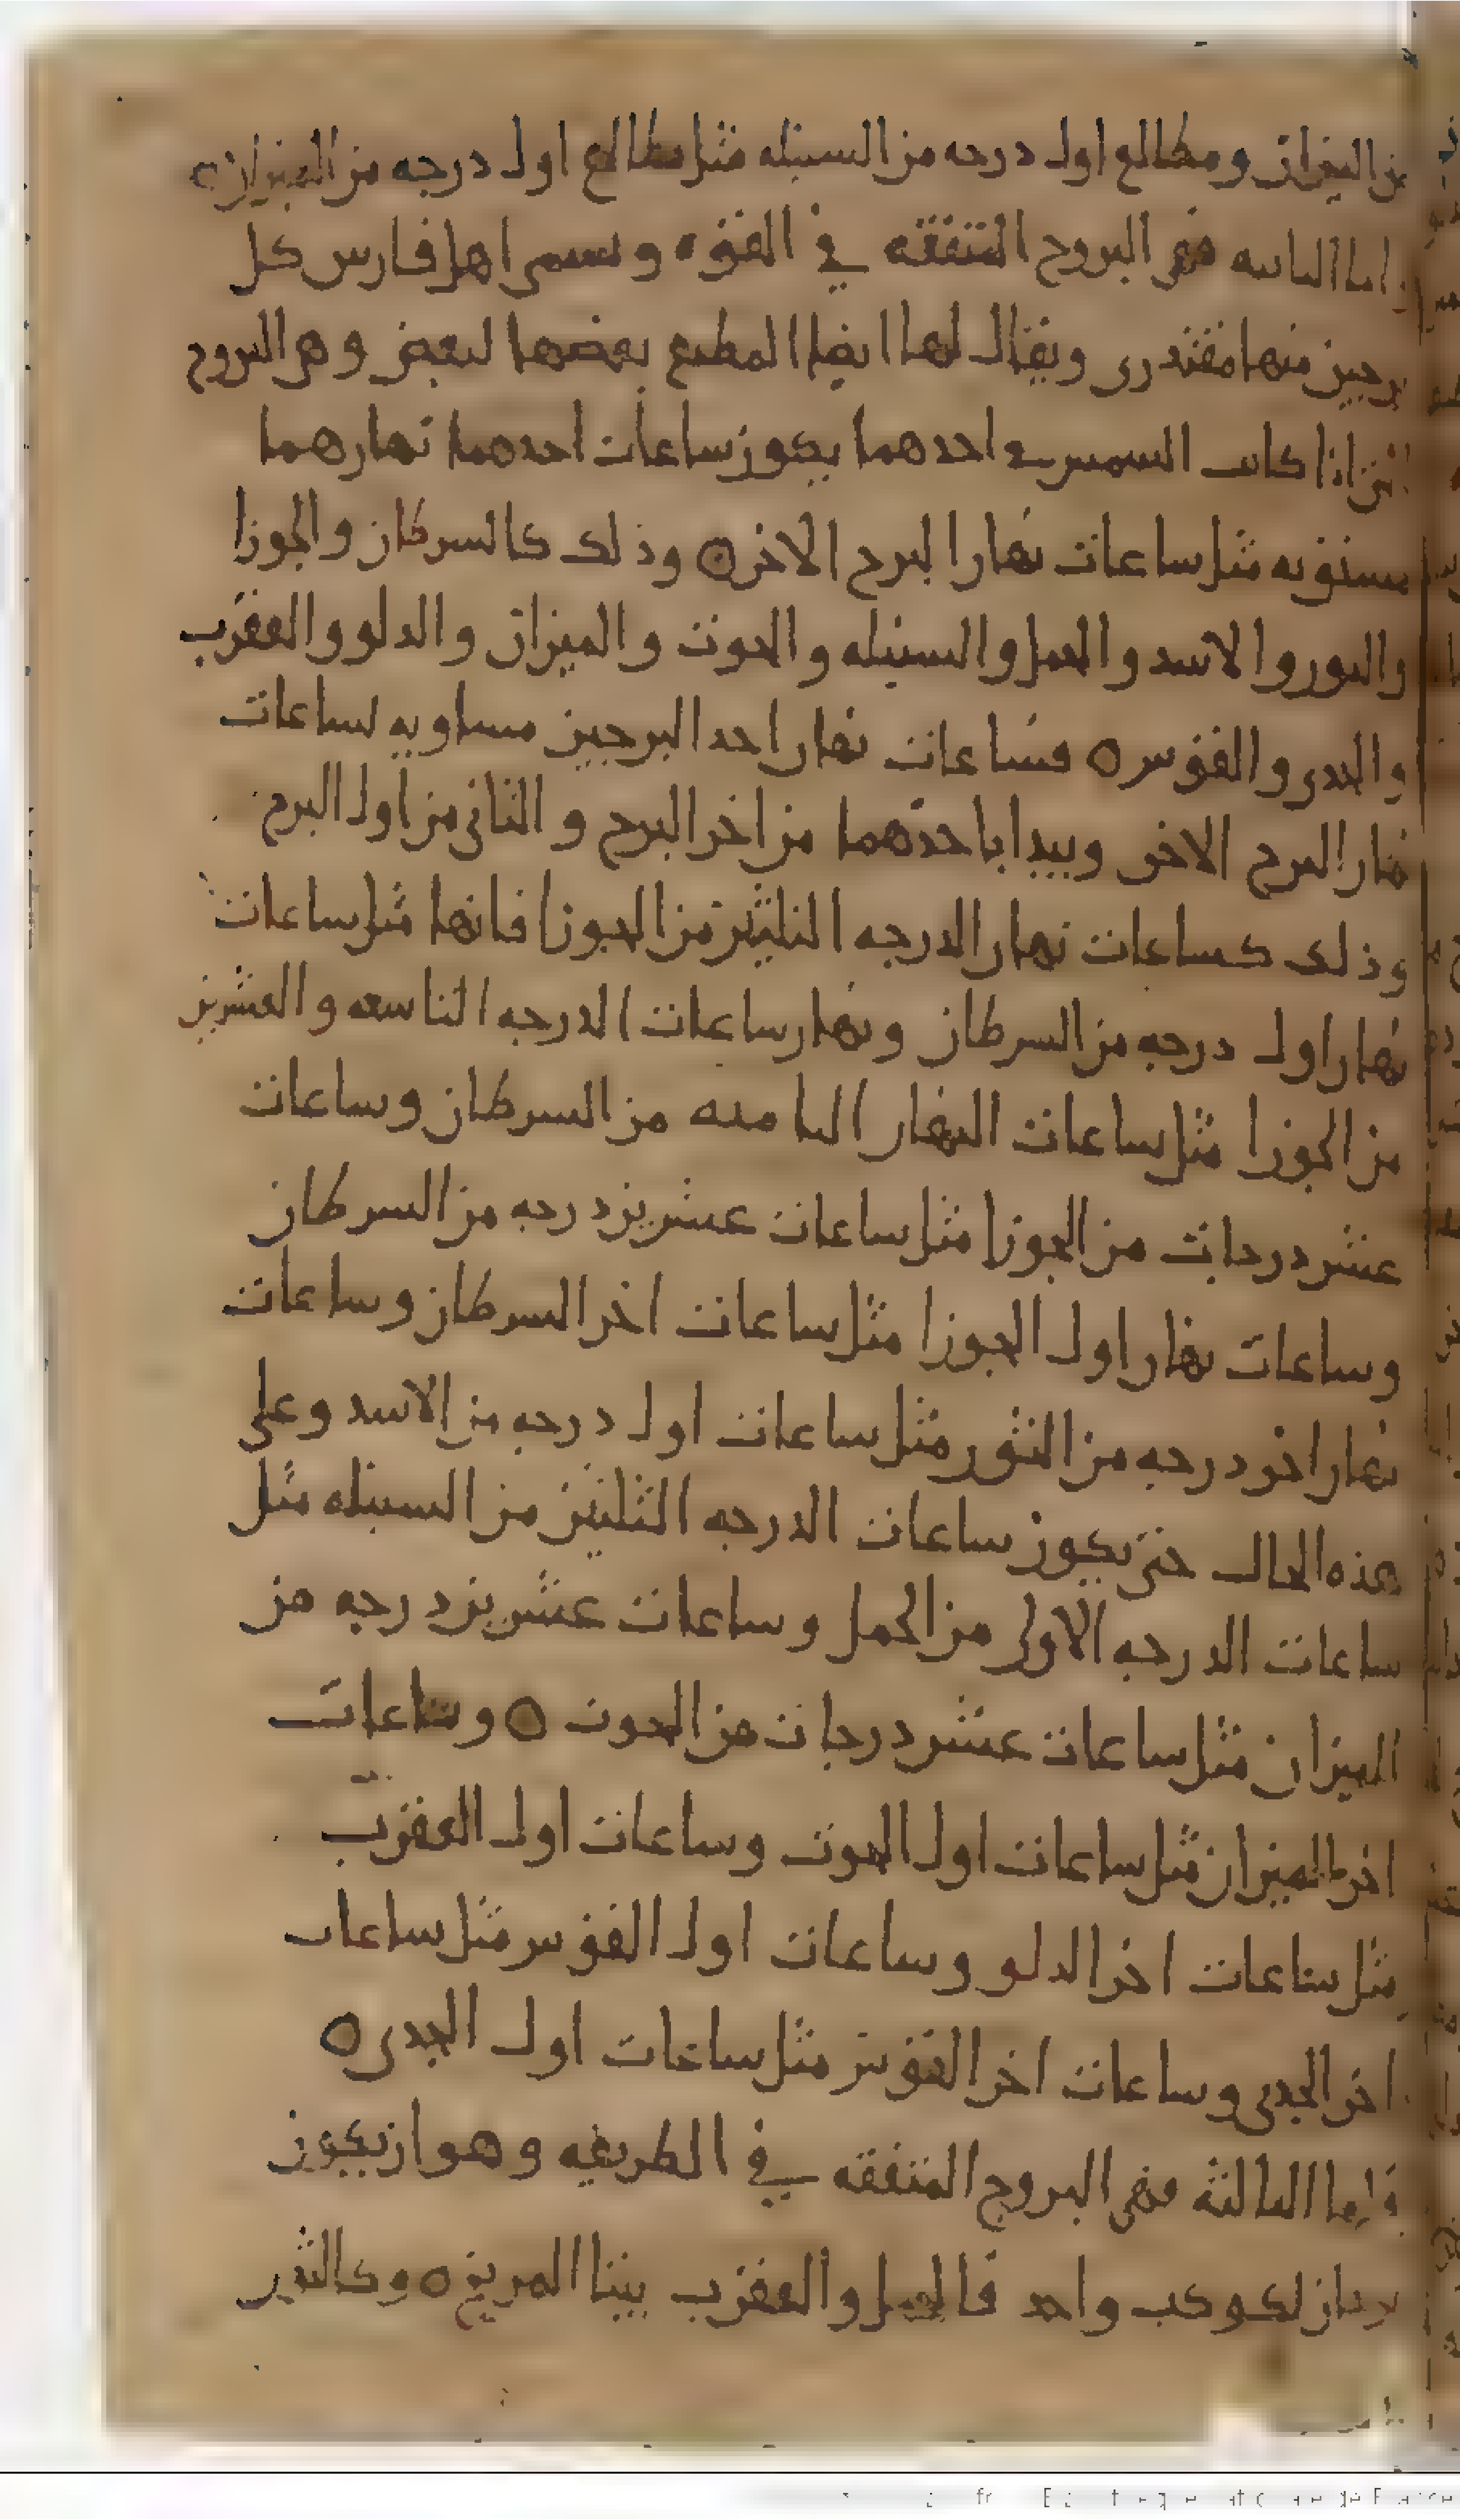 من الميزان ومطالع اول درجه من السنبله مثل مطالع اول درجه من الميزان
واما الثانيه فهى البروج المتفقه في القوه وتسمى اهل فارس كل
برجين منها مقتدرى ويقال لها ايضا المطيع بعضها لبعض وهى البروج
التى اذا كانت الشمس في احدهما يكون ساعات احدهما نهارهما
مستويه مثل ساعات نهار البرج الاخر ه وذلك كالسرطان والجوزا
والثور والاسد والحمل والسنبله والحوت والميزان والدلو والعقرب
والجدى والقوس ه فساعات نهار احد البرجين مساويه لساعات
نهار البرج الاخر ويبدا باحدهما من اخر البرج والثانى من اول البرج
وذلك كساعات نهار الدرجه الثلثين من الجوزا فانها مثل ساعات
نهار اول درجه من السرطان ونهار ساعات الدرجه التاسعه والعشرين
من الجوزا مثل ساعات النهار الثامنه من السرطان وساعات
عشر درجات من الجوزا مثل ساعات عشرين درجه من السرطان
وساعات نهار اول الجوزا مثل ساعات اخر السرطان وساعات
نهار اخر درجه من الثور مثل ساعات اول درجه من الاسد وعلى
هذه الحال حتى يكون ساعات الدرجه الثلثين من السنبله مثل
ساعات الدرجه الاولى من الحمل وساعات عشرين درجه من
الميزان مثل ساعات عشر درجات من الحوت ه وساعات
اخر الميزان مثل ساعات اول الحوت وساعات اول العقرب
مثل ساعات اخر الدلو وساعات اول القوس مثل ساعات
اخر الجدى وساعات اخر القوس مثل ساعات اول الجدى ه
واما الثالثه فهى البروج المتفقه في الطريقه وهو ان يكون
برجان لكوكب واحد فالحمل والعقرب بيتا المريخ ه وكالثور